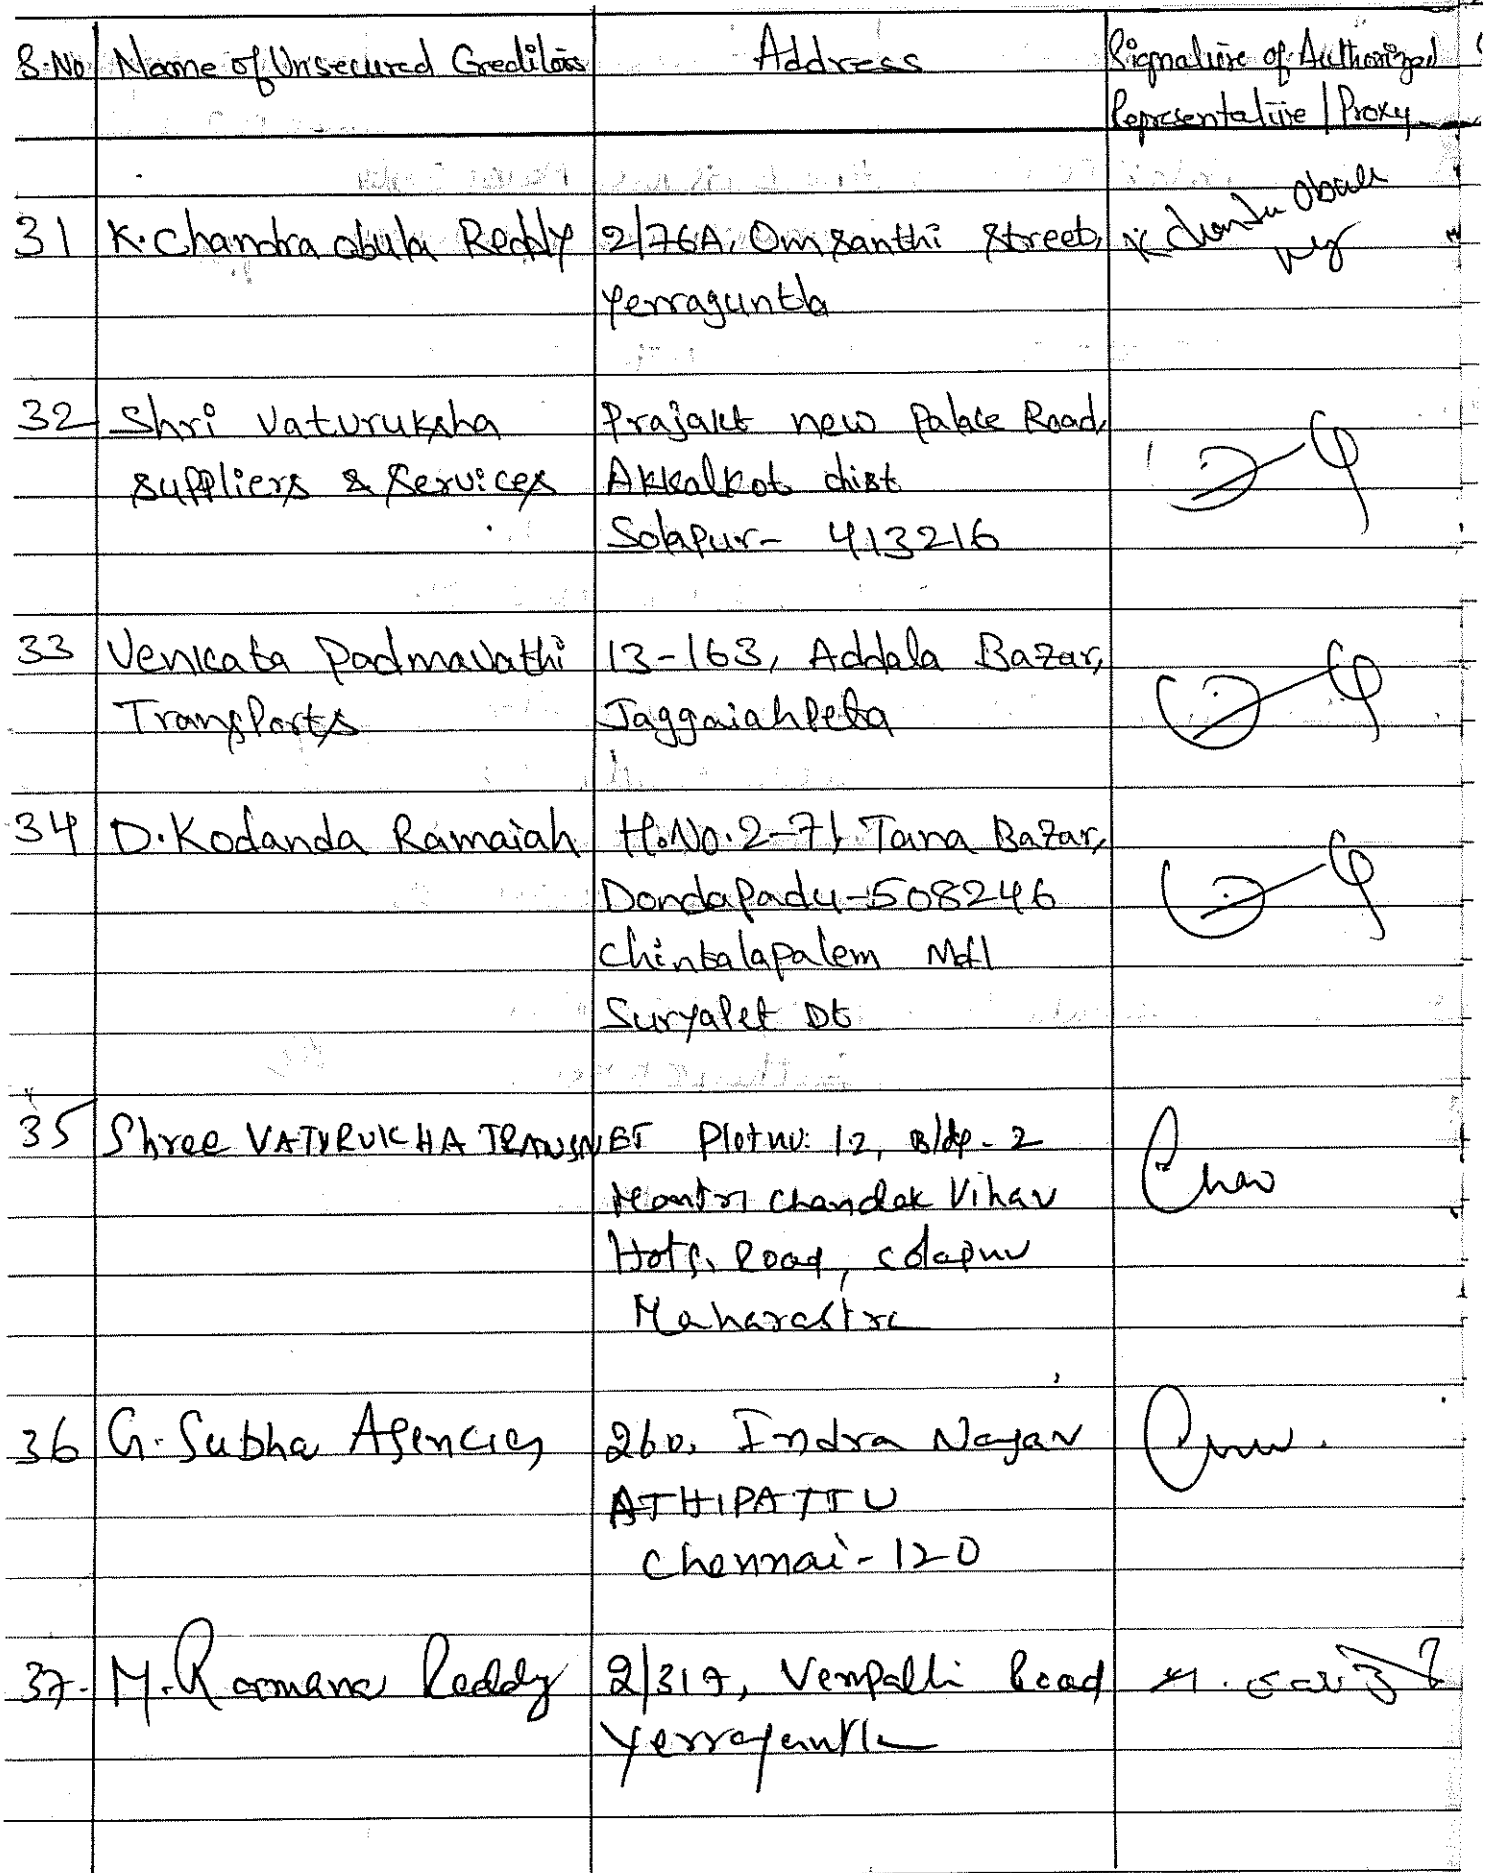 S.No Name of Unsecured Creditors Address Signature of Authorized
Representative / Proxy
31 K. Chandra obula Reddy 2/76A, Om santhi street, K Chandra Obula
Yerraguntla
32 Shri Vaturuksha Prajakt new Palace Road,
suppliers & services Akkalkot dist
Solapur- 413216
33 Venkata Padmavathi 13-163, Addala Bazar,
Transports Jaggaiahpeta
34 D. Kodanda Ramaiah H.No. 2-71 Tana Bazar,
Dondapadu-508246
Chintalapalem Mdl
Suryapet Dt
35 Shree VATURUKHA TRANSNET Plot no: 12, Bldg- 2
Mantri Chandak Vihar
Road, Solapur
Maharastra
36 G. Subha Agencies 260, Indra Nagar
ATHIPATTU
Chennai - 120
37. M. Ramana Reddy 2/317, Vempalli Road
Yerraguntla